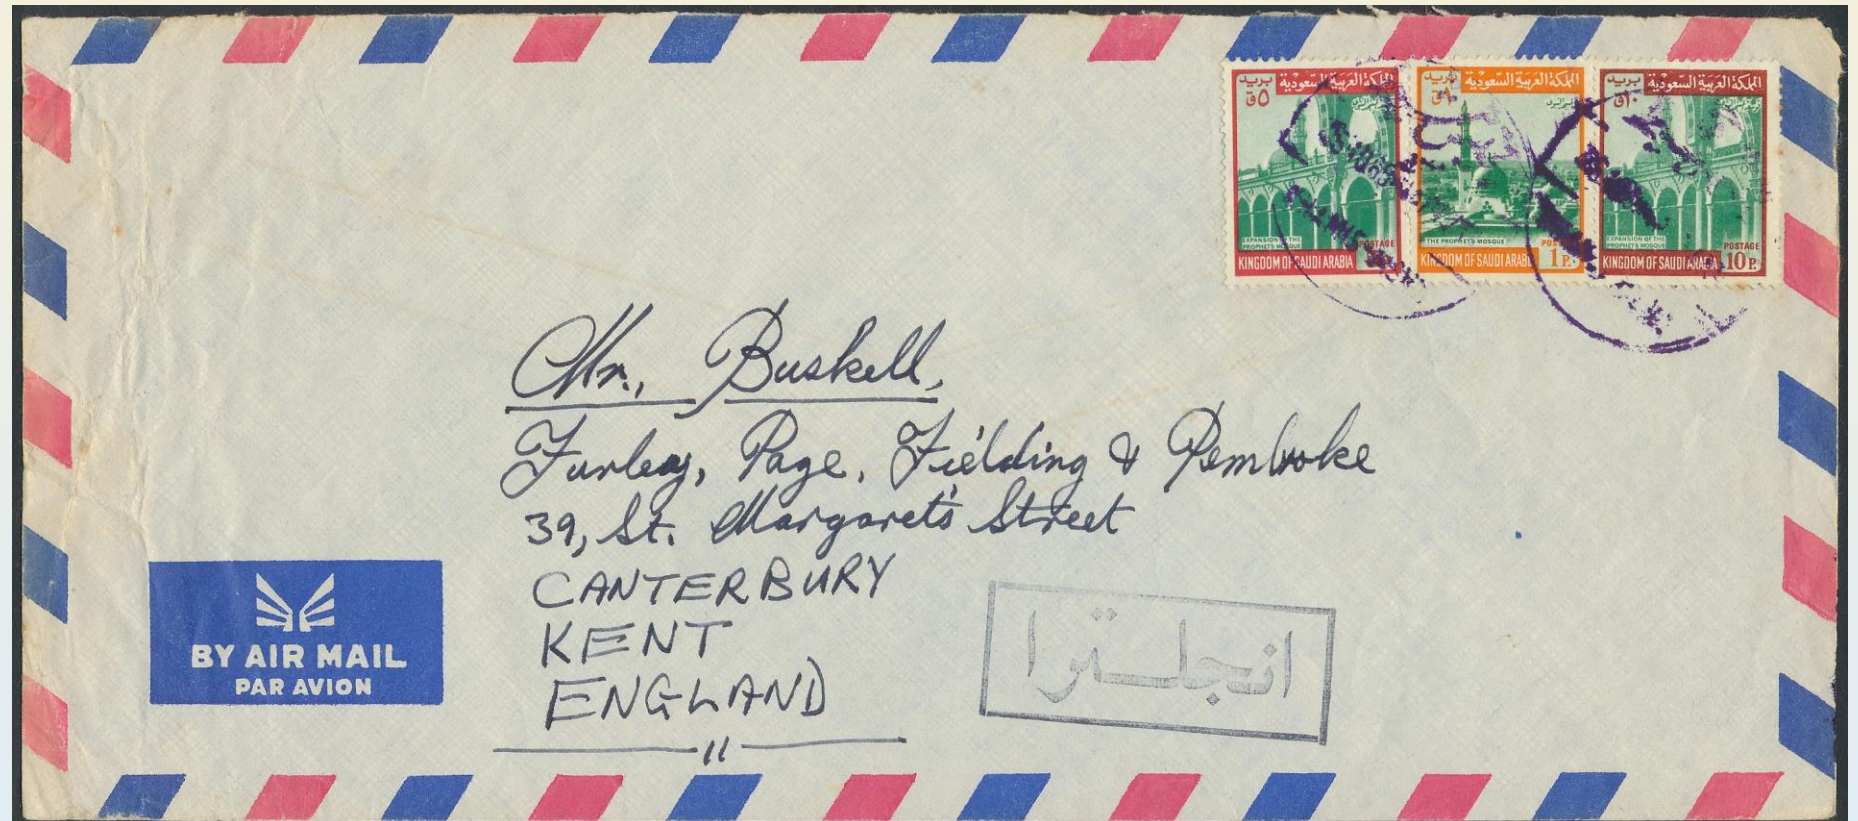 المملكة العربية السعودية بريد
٥ق
EXPANSION OF THE
PROPHETS MOSQUE
POSTAGE
KINGDOM OF SAUDI ARABIA
المملكة العربية السعودية بريد
THE PROPHETS MOSQUE
KINGDOM OF SAUDI ARABIA 1P.
المملكة العربية السعودية بريد
١٠ق
EXPANSION OF THE
PROPHETS MOSQUE
POSTAGE
KINGDOM OF SAUDI ARABIA 10P.
Mr., Buskell,
Furley, Page, Fielding & Pembroke
39, St. Margaret's Street
CANTERBURY
KENT
ENGLAND
انجلترا
BY AIR MAIL
PAR AVION